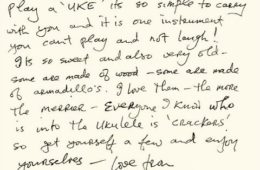 play a 'UKE' its so simple to carry
with you and it is one instrument
you cant play and not laugh!
Its so sweet and also very old-
some are made of wood - some are made
of armadillo's. I love them - the more
the merrier - Everyone I know who
is into the Ukulele is 'CRACKERS'
so get yourself a few and enjoy
yourselves - love from